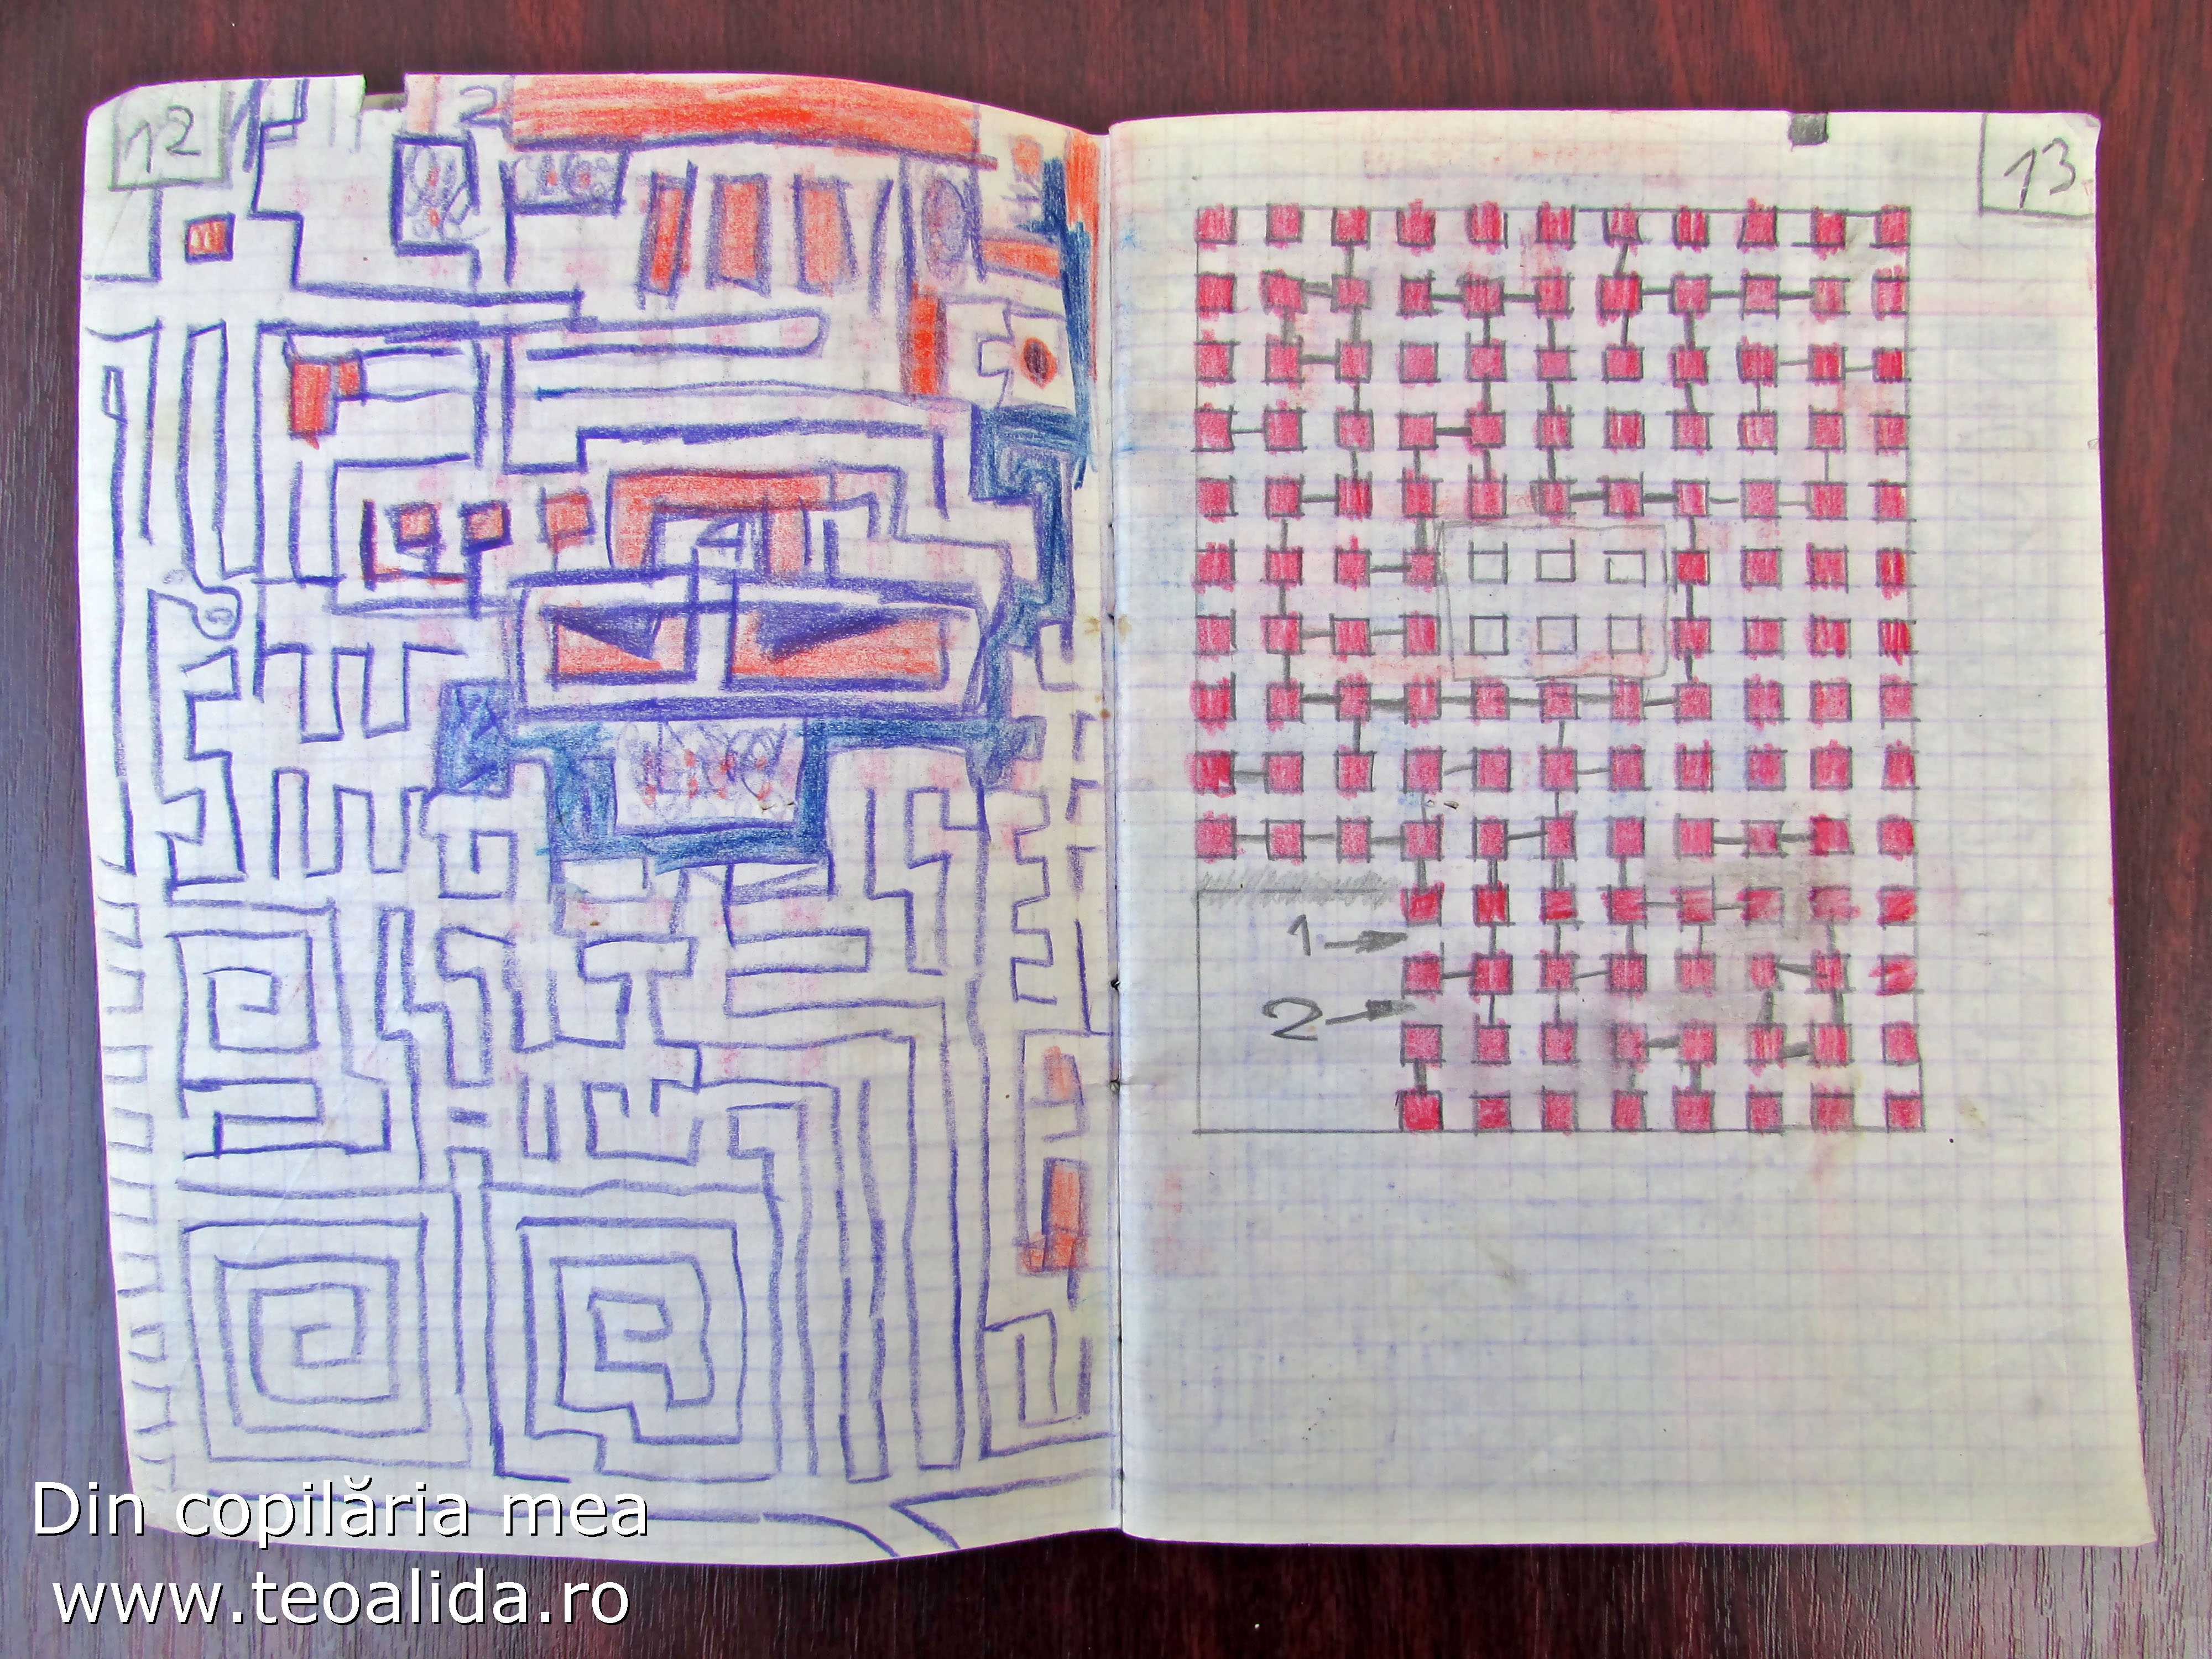 12
13
1
2
Din copilăria mea
www.teoalida.ro